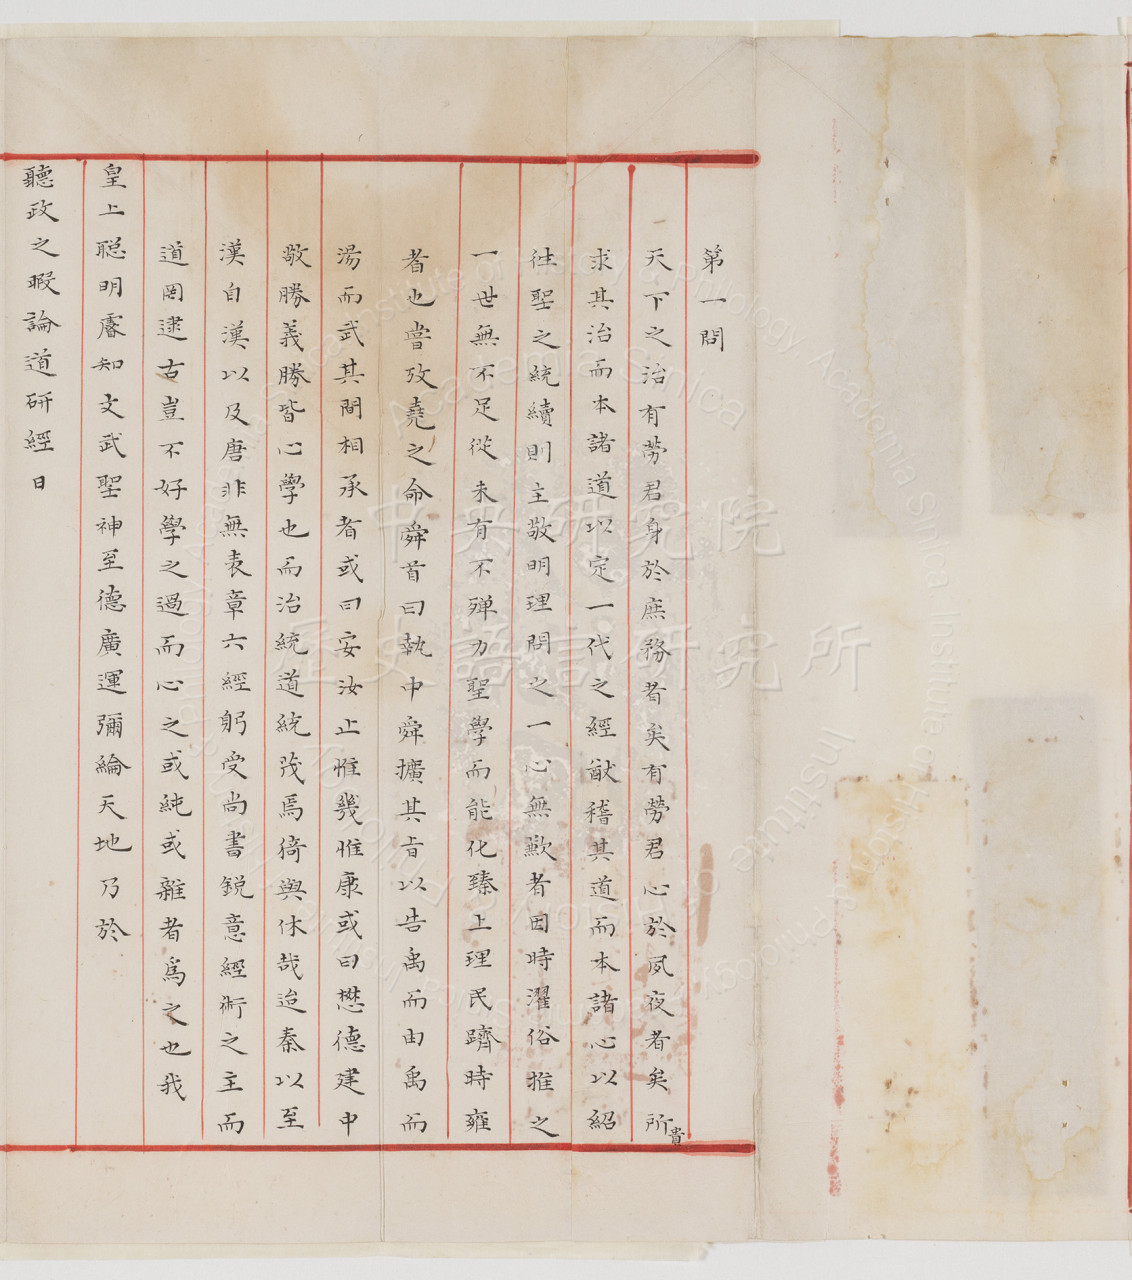 第一問
天下之治有勞君身於庶務者矣有勞君心於夙夜者矣所貴
求其治而本諸道以定一代之經猷稽其道而本諸心以紹
徃聖之統續則主敬明理問之一心無歉者因時濯俗推之
一世無不足從未有不殫力聖學而能化臻上理民躋時雍
者也嘗攷堯之命舜首曰執中舜擴其旨以告禹而由禹而
湯而武其間相承者或曰安汝止惟幾惟康或曰懋德建中
敬勝義勝皆心學也而治統道統茂焉猗與休哉迨秦以至
漢自漢以及唐非無表章六經躬受尚書銳意經術之主而
道罔逮古豈不好學之過而心之或純或雜者爲之也我
皇上聪明睿知文武聖神至德廣運彌綸天地乃於
聽政之暇論道研經日
中央研究院
歷史語言研究所
Institute of History & Philology Academia Sinica